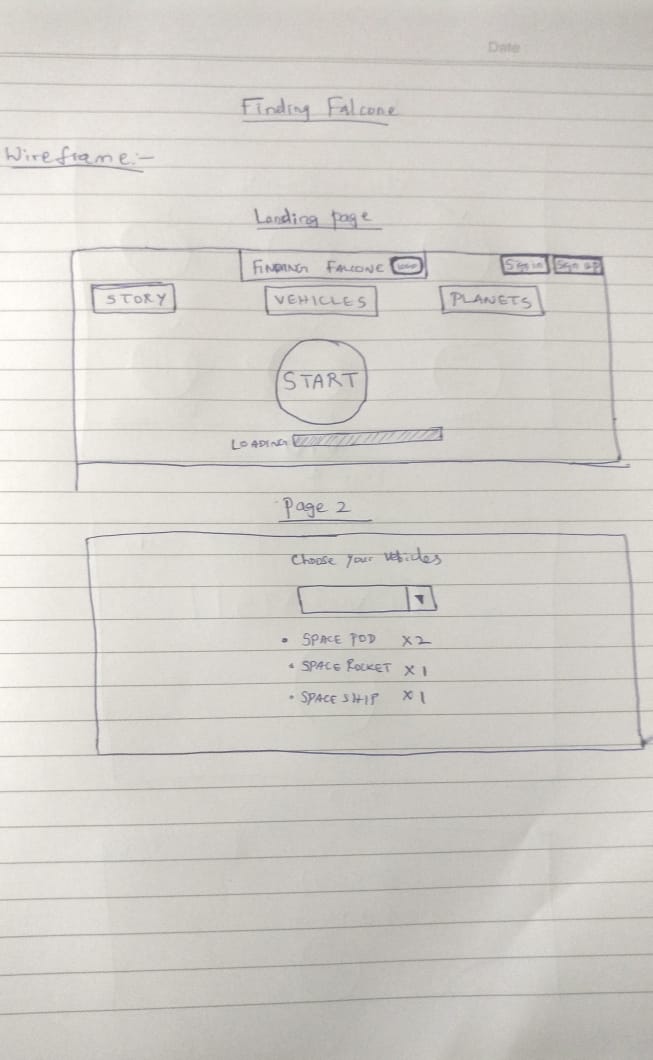 Date
Finding Falcone
Wireframe:-
Landing page
FINDING FALCONE LOGO Sign in Sign up
STORY VEHICLES PLANETS
START
LOADING
Page 2
Choose your vehicles
• SPACE POD X2
• SPACE ROCKET X1
• SPACE SHIP X1